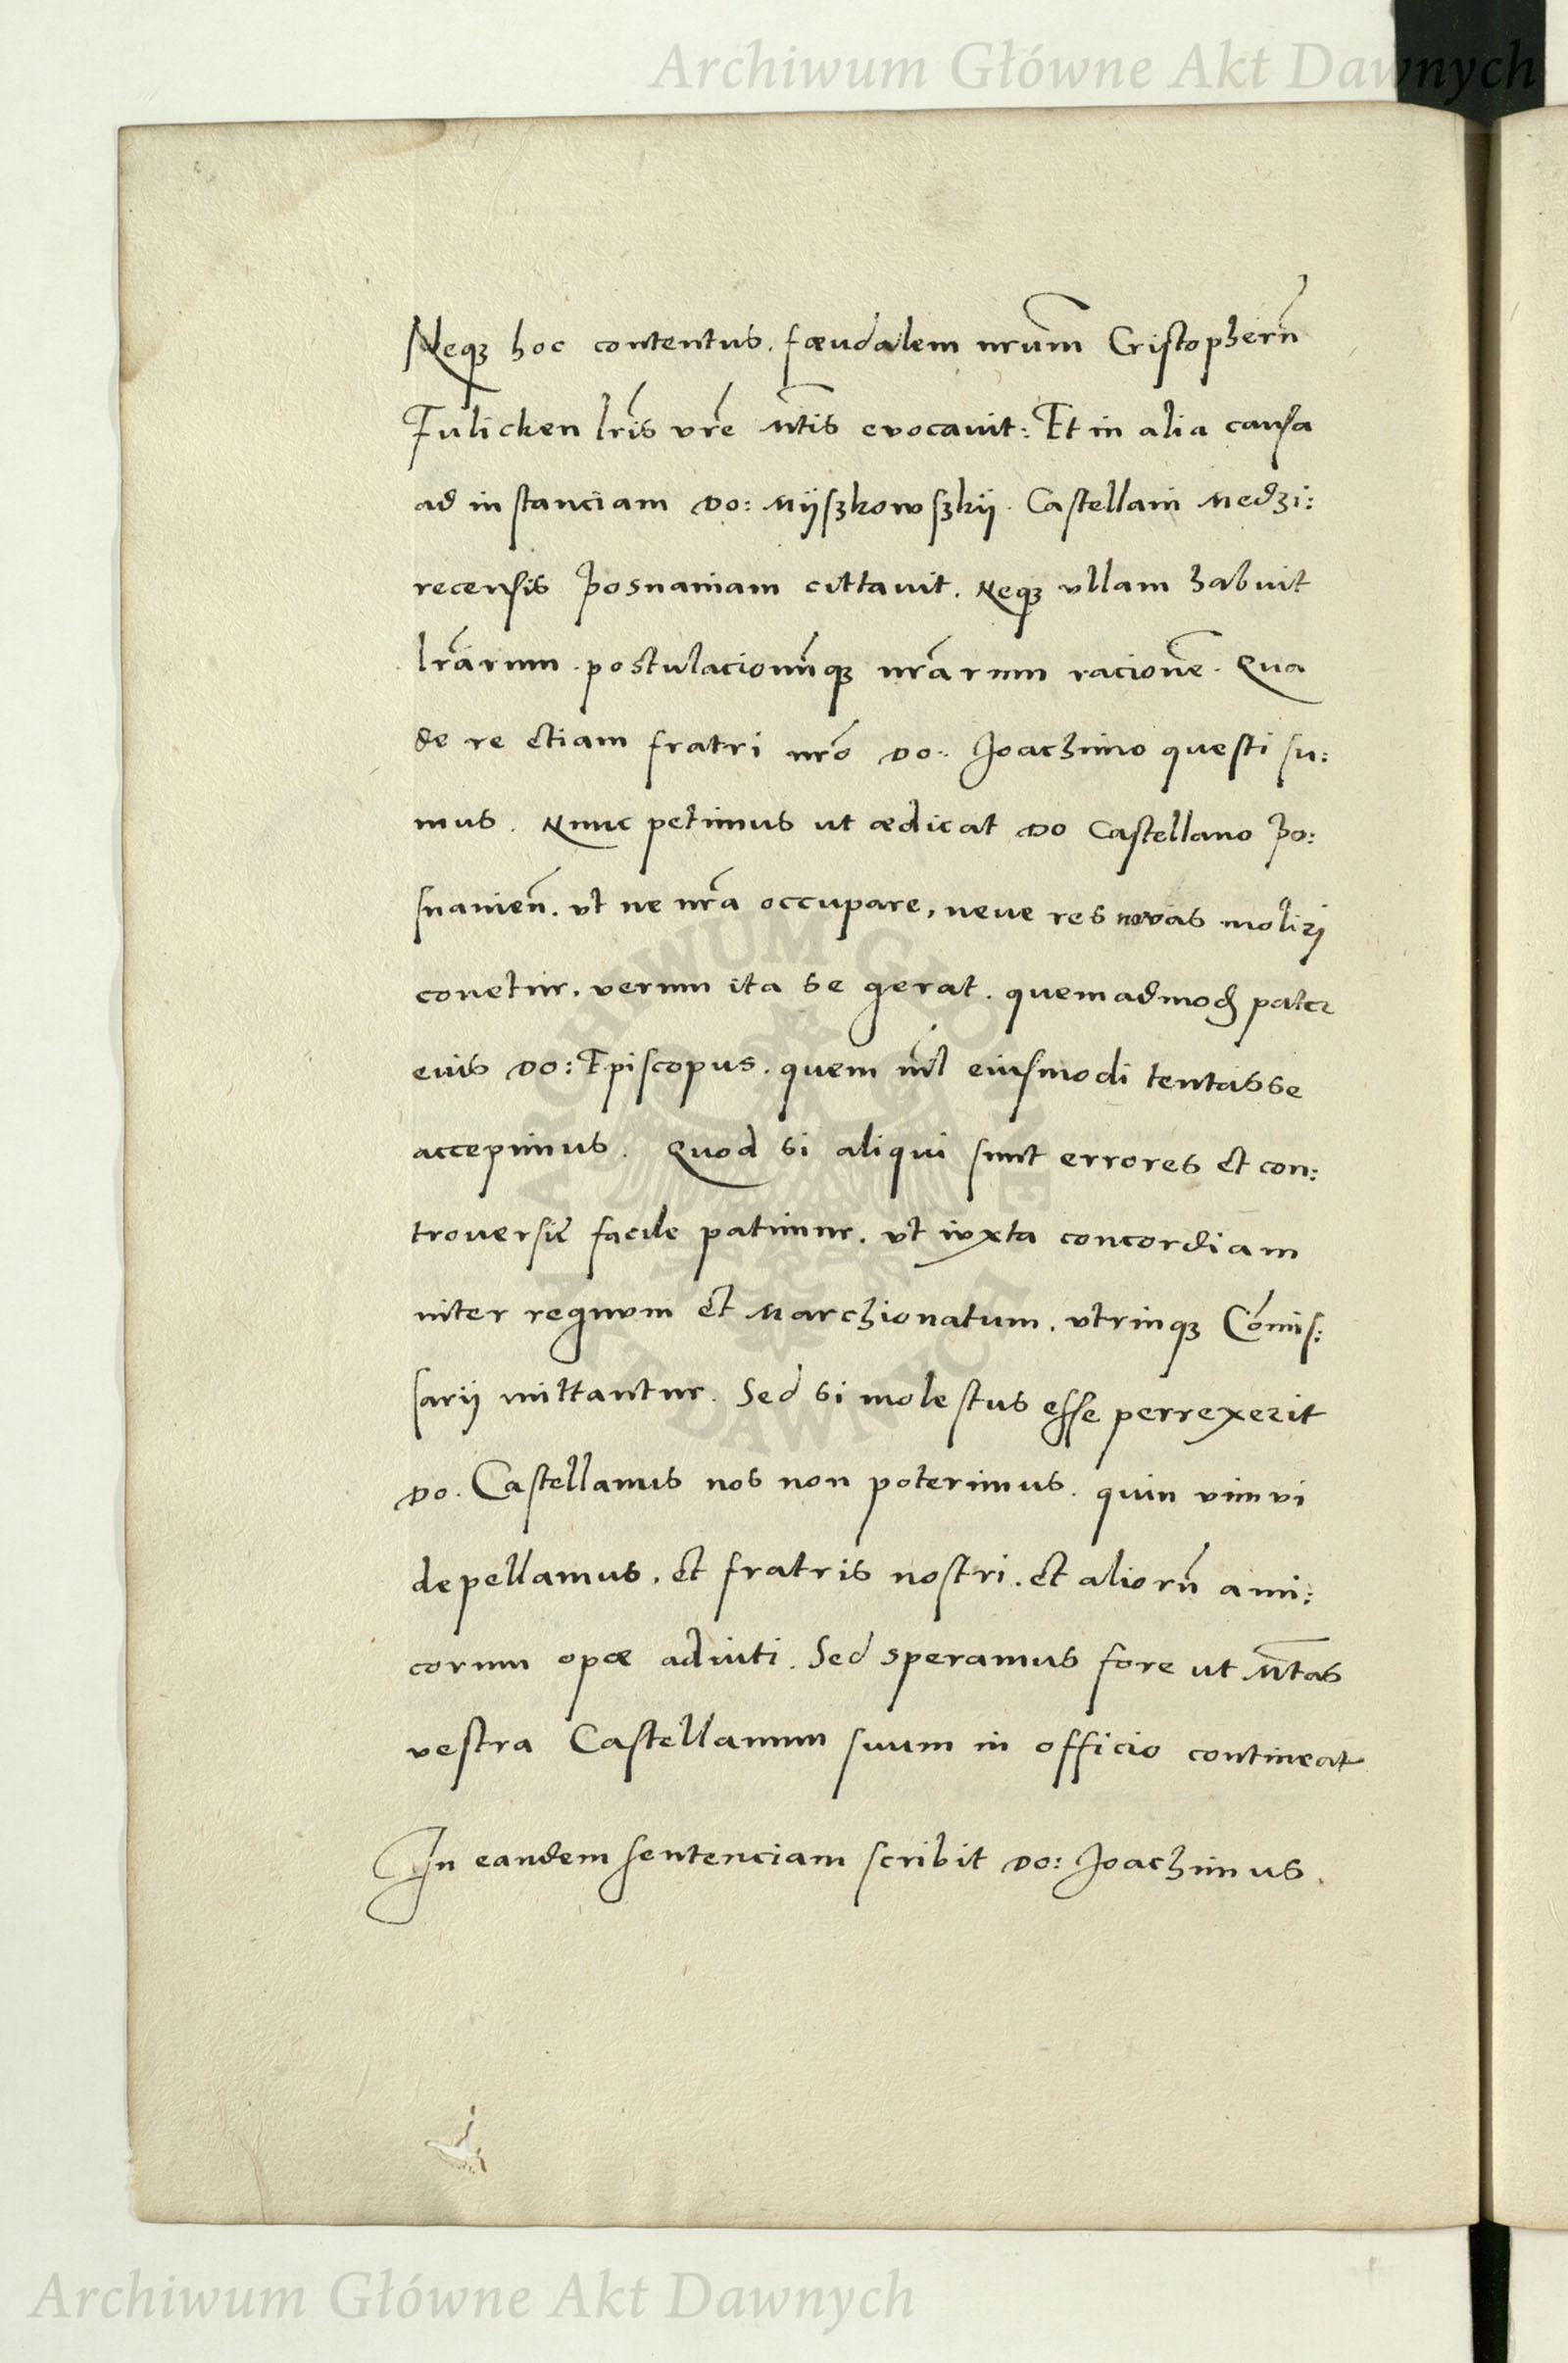 Archiwum Główne Akt Dawnych
Neqꝫ hoc contentus. fæudalem nrum̃ Cristopherũ
Tulicken lr̃is vr̃e Mt̃is evocauit: Et in alia causa
ad instanciam Do: Mÿsʒkowsʒkÿ. Castellani Medʒi:
recensis Posnaniam cittauit. Neqꝫ vllam habuit
lr̃arum. postulacionũqꝫ nr̃arum racionẽ. Qua
de re etiam fratri nr̃o Do: Joachimo questi su:
mus. Nunc petimus ut ædicat Do Castellano Po:
snanien̄. vt ne nr̃a occupare, neue res novas moliri
conetur, verum ita se gerat. quemadmoď pater
eius Do: Episcopus. quem nil̃ eiusmodi tentasse
accepimus. Quod si aliqui sunt errores et con:
trouersię facile patimur, vt iuxta concordiam
inter regnum et Marchionatum. vtrinqꝫ Com̃is:
sarij mittantur. Sed si molestus esse perrexerit
Do. Castellanus nos non poterimus. quin vim vi
depellamus, et fratris nostri. et aliorũ ami:
corum opæ adiuti. Sed speramus fore ut Mt̃as
vestra Castellanum suum in officio contineat
In eandem sentenciam scribit Do: Joachimus.
ARCHIWUM GŁÓWNE
AKT DAWNYCH
Archiwum Główne Akt Dawnych